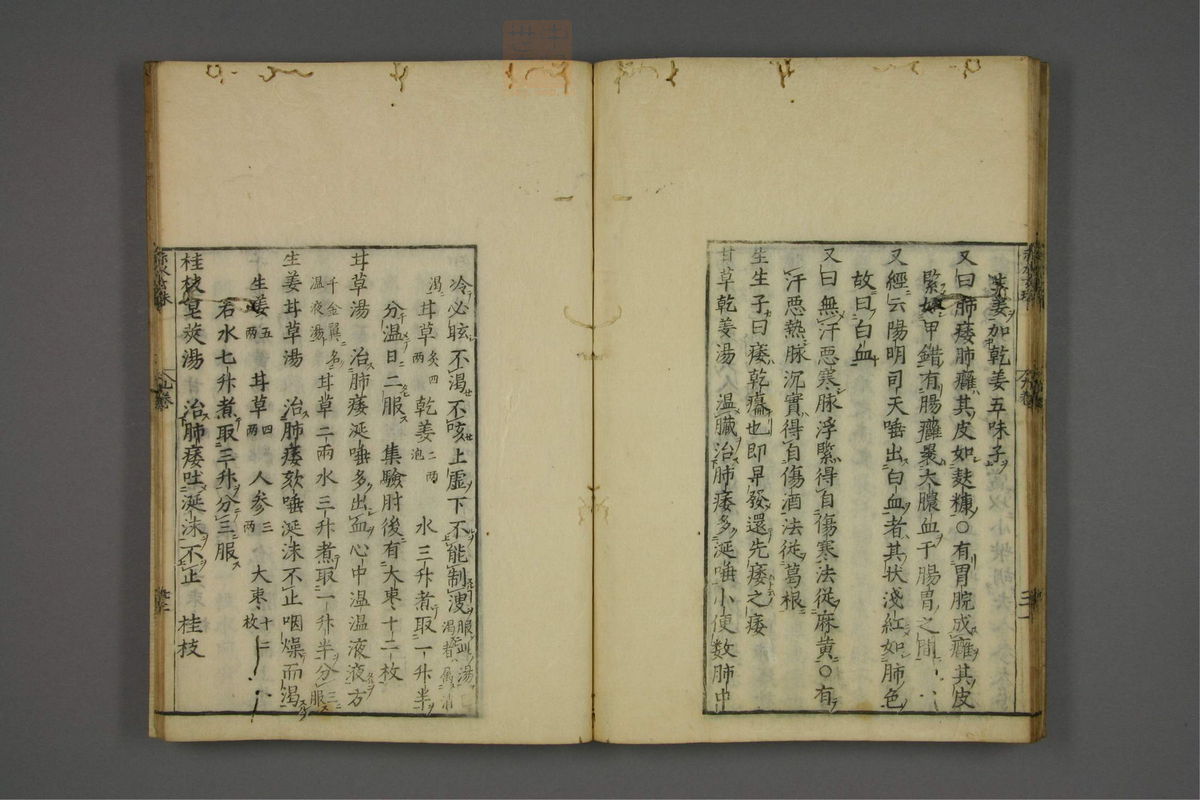 味姜加乾姜五味子
又曰肺痿肺癰其皮如麩糠○有胃脘成癰其皮
緊如甲錯有腸癰裹大膿血于腸胃之間
又經云陽明司天唾出白血者其状淺紅如肺色
故曰白血
又曰無汗惡寒脉浮緊得自傷寒法從麻黄○有
汗惡熱脉沉實得自傷酒法從葛根
生生子曰痿乾癟也即早發還先痿之痿
甘草乾姜湯 温臟治肺痿多涎唾小便数肺中
冷必眩不渴不咳上虚下不能制溲服此湯渴者属消渴
甘草炙四兩 乾姜二兩泡 水三升煮取一升半
分温日二服 集驗肘後有大棗十二枚
甘草湯 治肺痿涎唾多出血心中温温液液方
千金翼名温液湯 甘草二兩水三升煮取一升半分三服
生姜甘草湯 治肺痿欬唾涎沫不止咽燥而渴
生姜五兩 甘草四兩 人参三兩 大棗十二枚
右水七升煮取三升分三服
桂枝皂莢湯 治肺痿吐涎沫不止 桂枝